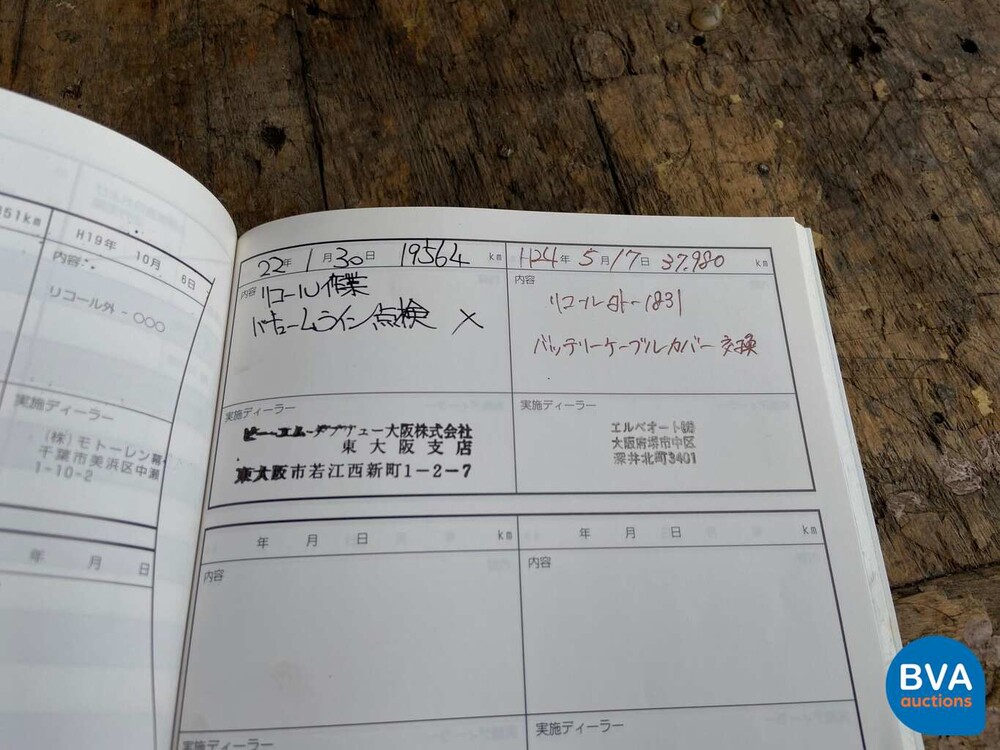 51km
H19年 10月 6日
内容
リコール外 - 000
実施ディーラー
(株)モトーレン幕
千葉市美浜区中瀬
1-10-2
年 月 日
22年 1月30日 19564 km
内容
リコール作業
バキュームライン点検 ×
実施ディーラー
ビー・エム・ダブリュー大阪株式会社
東大阪支店
東大阪市若江西新町1-2-7
H24年 5月17日 37,980 km
内容
リコール外-1831
バッテリーケーブルカバー交換
実施ディーラー
エルベオート㈱
大阪府堺市中区
深井北町3401
年 月 日 km
内容
実施ディーラー
年 月 日 km
内容
実施ディーラー
BVA
auctions